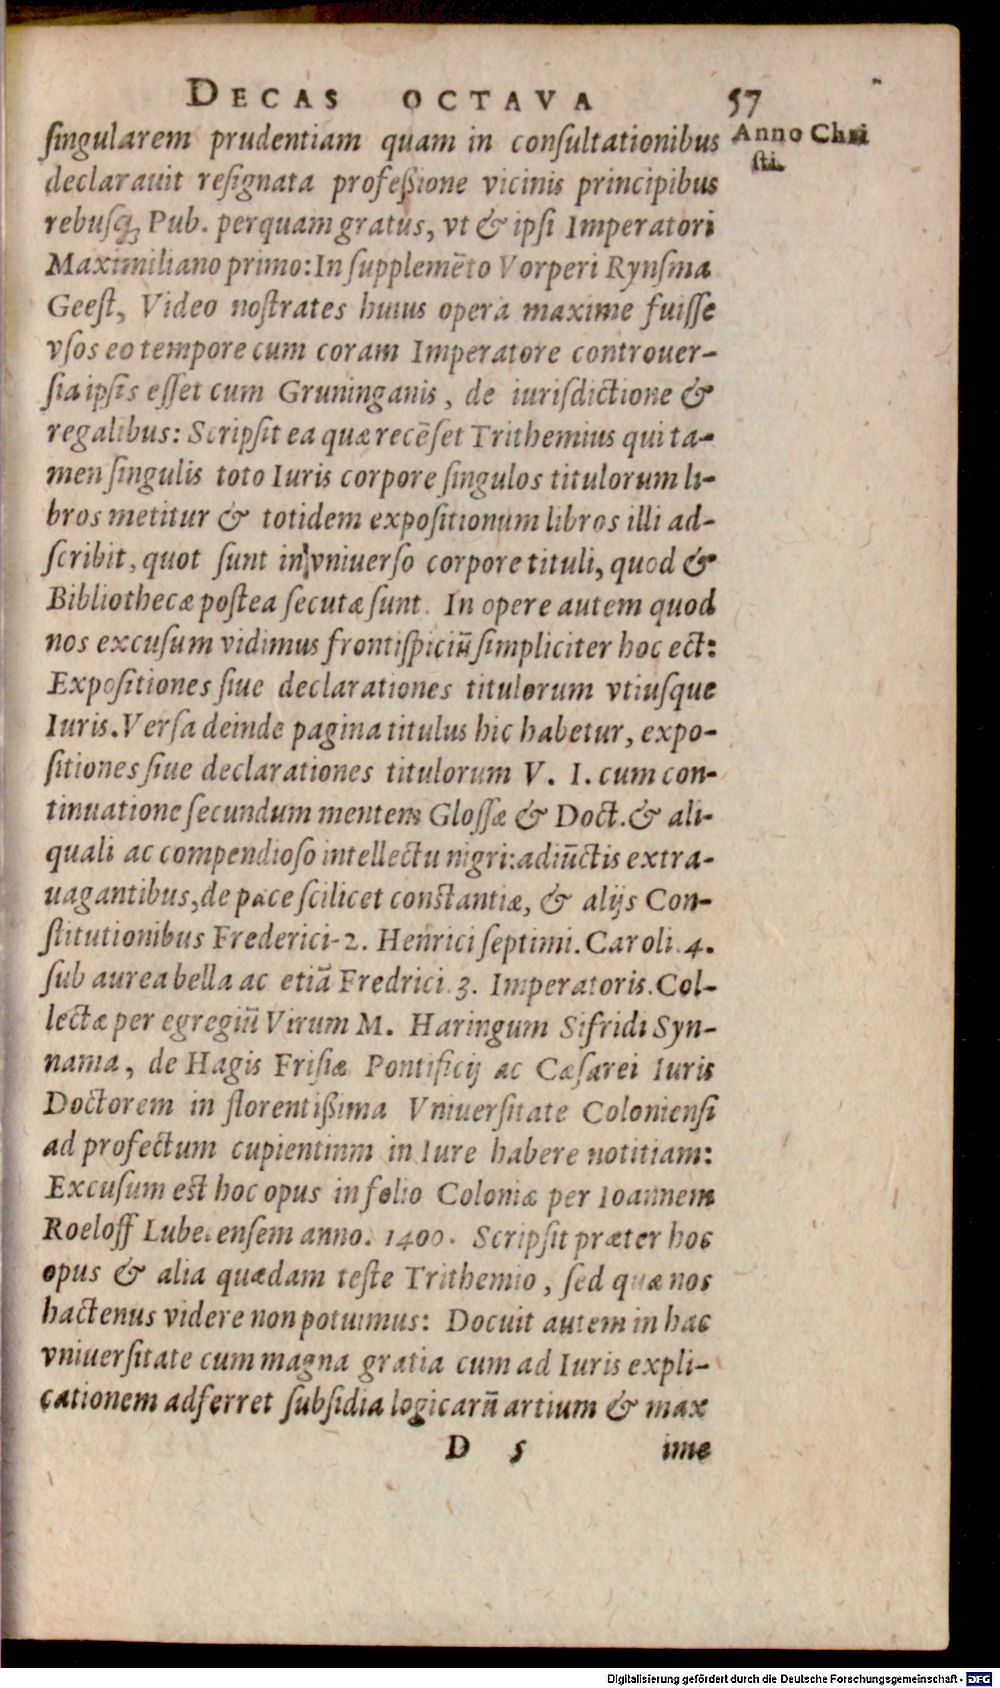 DECAS OCTAVA 57
Anno Chri
sti.
singularem prudentiam quam in consultationibus
declarauit resignata profeßione vicinis principibus
rebusq; Pub. perquam gratus, vt & ipsi Imperatori
Maximiliano primo: In supplemẽto Vorperi Rynsma
Geest, Video nostrates huius opera maxime fuisse
vsos eo tempore cum coram Imperatore controuer-
sia ipsis esset cum Gruninganis, de iurisdictione &
regalibus: Scripsit ea quæ recẽset Trithemius qui ta-
men singulis toto Iuris corpore singulos titulorum li-
bros metitur & totidem expositionum libros illi ad-
scribit, quot sunt in vniuerso corpore tituli, quod &
Bibliothecæ postea secutæ sunt. In opere autem quod
nos excusum vidimus frontispiciũ simpliciter hoc ect:
Expositiones siue declarationes titulorum vtiusque
Iuris. Versa deinde pagina titulus hic habetur, expo-
sitiones siue declarationes titulorum V. I. cum con-
tinuatione secundum mentem Glossæ & Doct. & ali-
quali ac compendioso intellectu nigri: adiũctis extra-
uagantibus, de pace scilicet constantiæ, & alijs Con-
stitutionibus Frederici-2. Henrici septimi. Caroli. 4.
sub aurea bella ac etiã Fredrici. 3. Imperatoris. Col-
lectæ per egregiũ Virum M. Haringum Sifridi Syn-
nama, de Hagis Frisiæ Pontificij ac Cæsarei Iuris
Doctorem in florentißima Vniuersitate Coloniensi
ad profectum cupientinm in Iure habere notitiam:
Excusum est hoc opus in folio Coloniæ per Ioannem
Roeloff Lubecensem anno. 1400. Scripsit præter hoc
opus & alia quædam teste Trithemio, sed quæ nos
hactenus videre non potuimus: Docuit autem in hac
vniuersitate cum magna gratia cum ad Iuris expli-
cationem adferret subsidia logicarũ artium & max
D 5 ime
Digitalisierung gefördert durch die Deutsche Forschungsgemeinschaft - DFG